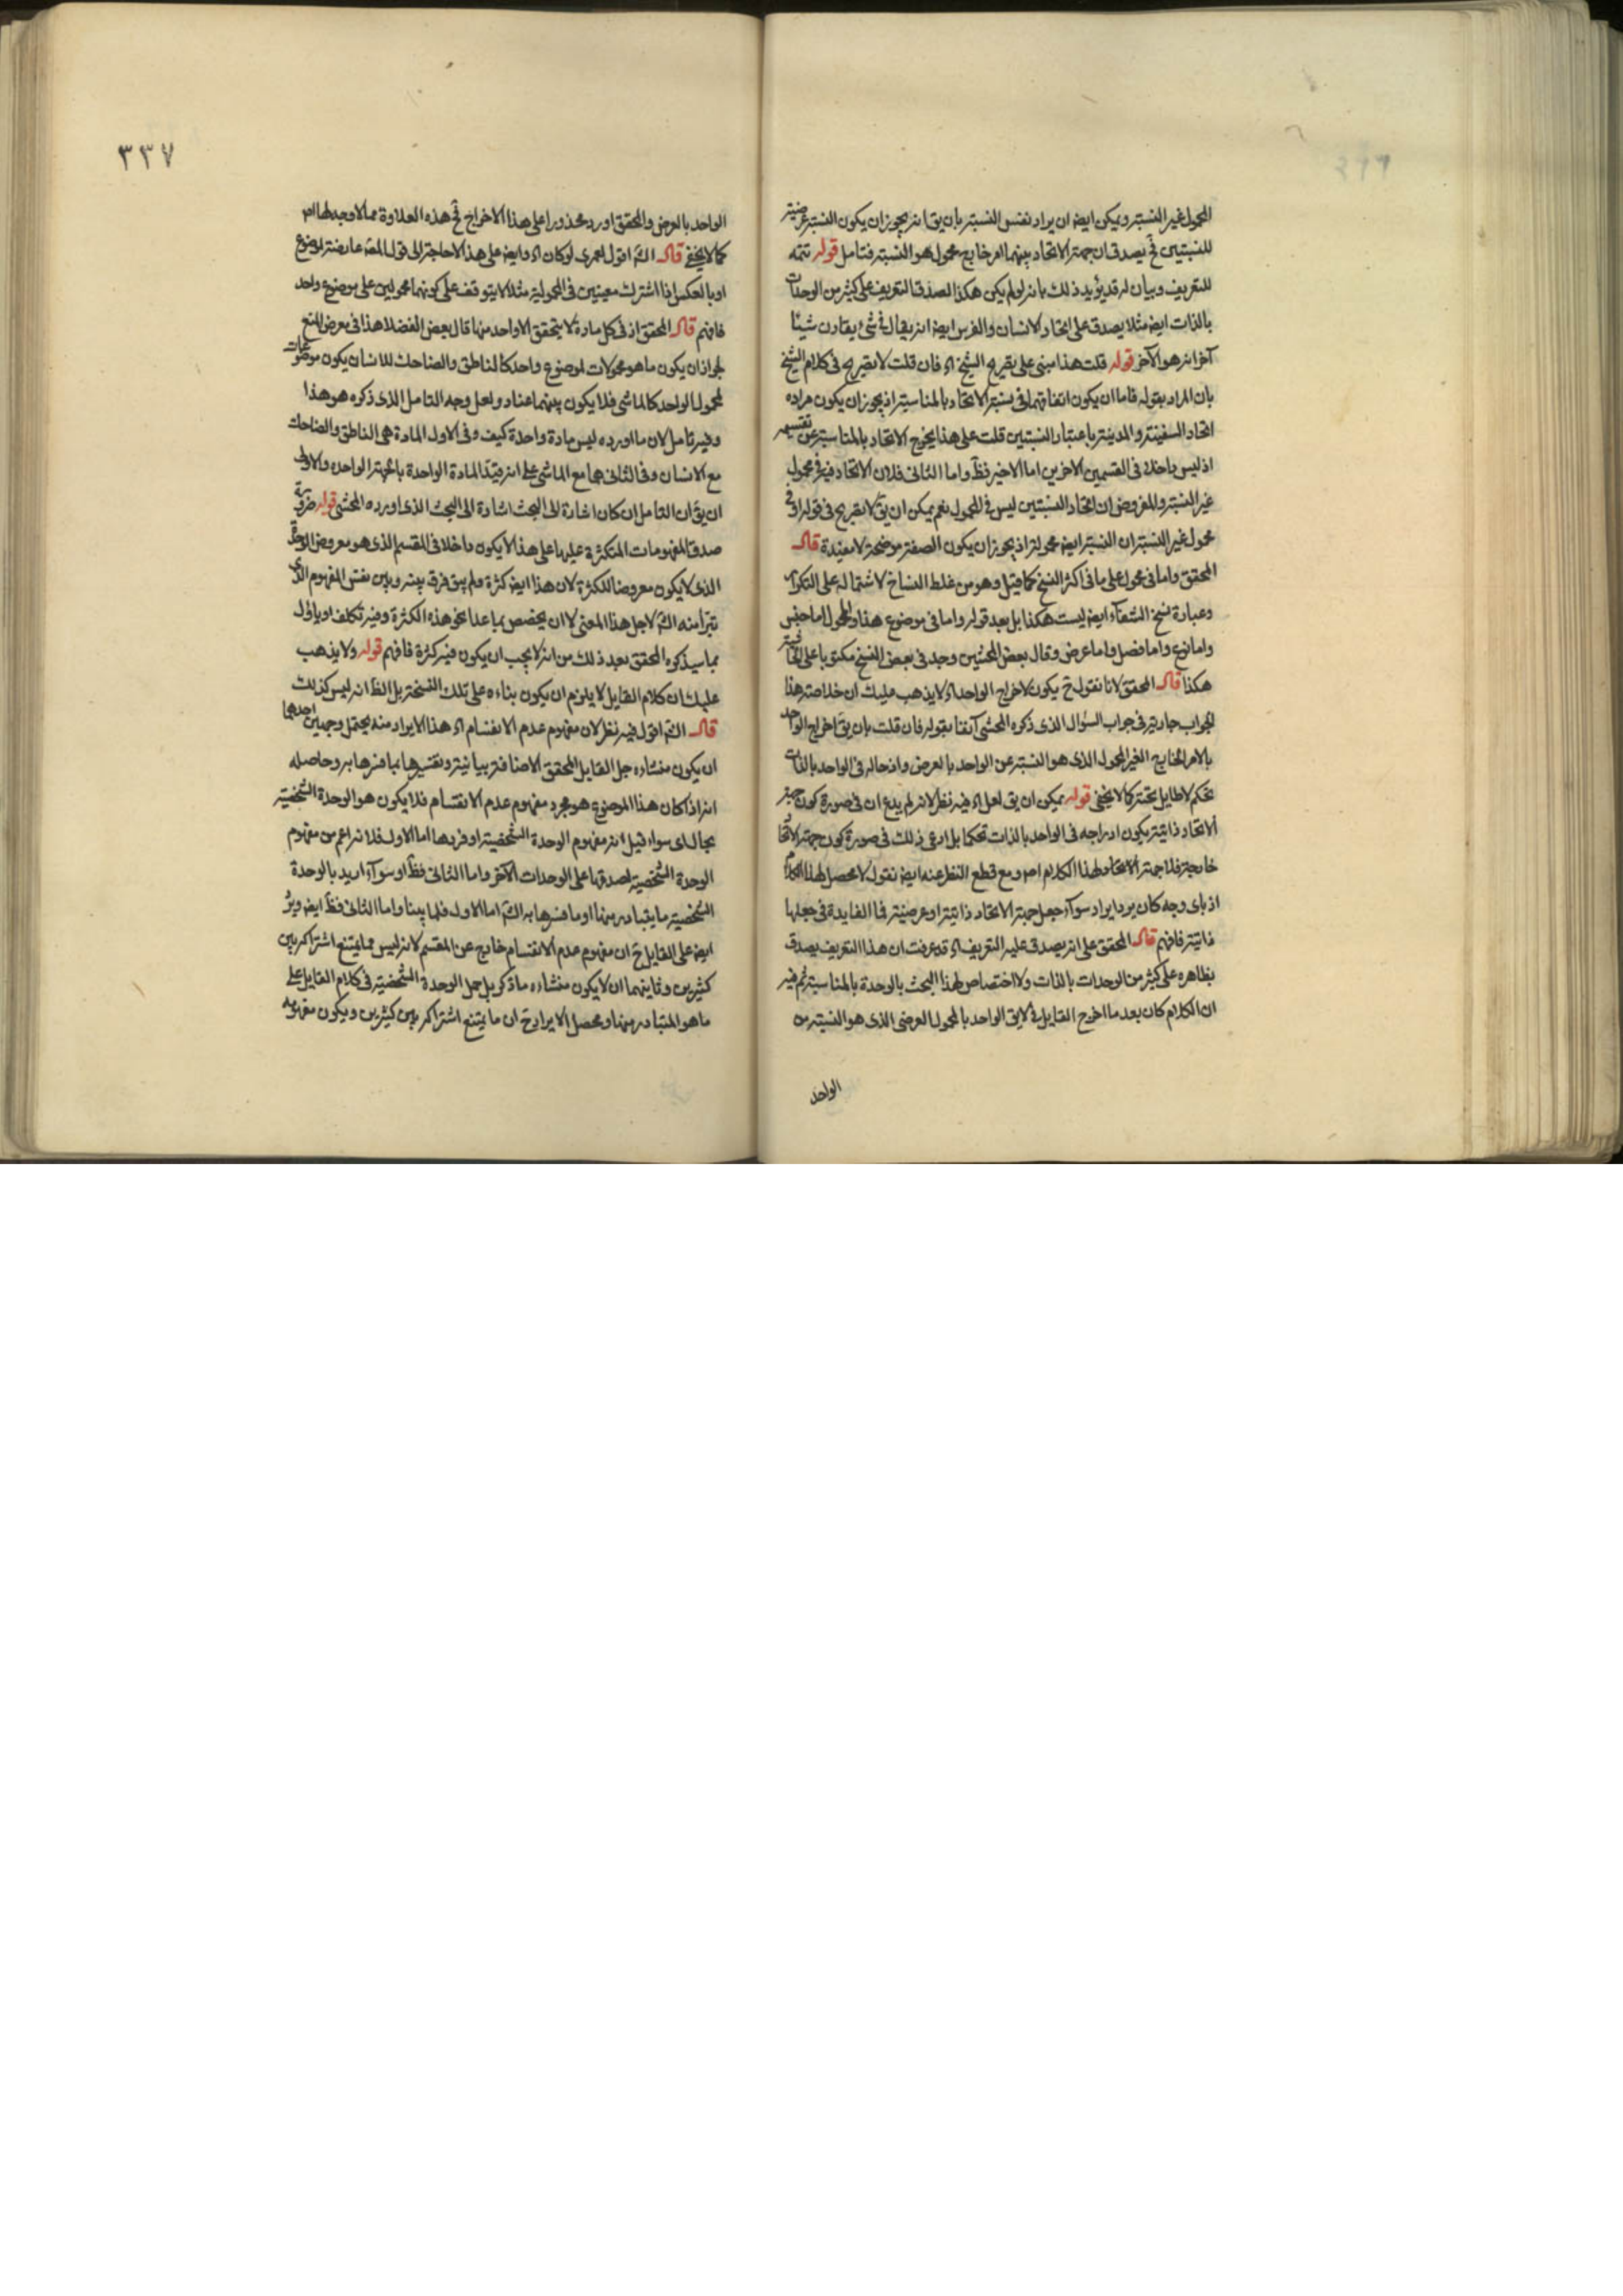 المحمول غير النسبة ويمكن ايضا ان يراد نفس النسبة بان يق انه يجوز ان يكون النسبة عرضية
للنسبتين فح يصدق ان جهة الاتحاد بينهما امر خارج محمول هو النسبة فتامل قوله تتمه
للتعريف وبيان له قد يؤيد ذلك بانه لو لم يكن هكذا لصدق التعريف على كثير من الوحدات
بالذات ايضا مثلا يصدق على اتحاد الانسان والفرس ايضا انه يقال في شئ يقارن شيئا
آخر انه هو الآخر قوله قلت هذا مبنى على تصريح الشيخ اه فان قلت لا تصريح فى كلام الشيخ
بان المراد بقوله فاما ان يكون اتفاقهما فى نسبة الاتحاد بالمناسبة اذ يجوز ان يكون مراده
اتحاد السفينة والمدينة باعتبار النسبتين قلت على هذا يخرج الاتحاد بالمناسبة عن تقسيمه
اذ ليس داخلا فى القسمين الاخرين اما الاخير فظ واما الثانى فلان الاتحاد فيه فى محمول
غير النسبة والمفروض ان اتحاد النسبتين ليس فى المحمول نعم يمكن ان يق لا تصريح فى قوله او فى
محمول غير النسبة ان النسبة ايضا محمولة اذ يجوز ان يكون الصفة موضحة لا مقيدة قال
المحقق واما فى محمول على ما فى اكثر النسخ كما قيل وهو من غلط النساخ لاشتماله على التكرار
وعبارة نسخ الشفاء ايضا ليست هكذا بل بعد قوله واما فى موضوع هذا والمحمول اما جنس
واما نوع واما فصل واما عرض وقال بعض المحشيين وجد فى بعض النسخ مكتوبا على الحاشية
هكذا قال المحقق لانا نقول ح يكون لاخراج الواحد اه لا يذهب عليك ان خلاصة هذا
الجواب جارية فى جواب السؤال الذى ذكره المحشى آنفا بقوله فان قلت بان يق اخراج الواحد
بالامر الخارج الغير المحمول الذى هو النسبة عن الواحد بالعرض وادخاله فى الواحد بالذات
تحكم لا طايل تحته كما لا يخفى قوله يمكن ان يق لعل اه فيه نظر لانه لم يدع ان فى صورة كون جهة
الاتحاد ذاتية يكون ادراجه فى الواحد بالذات تحكما بل ادعى ذلك فى صورة كون جهة الاتحاد
خارجة فلا جهة لاتحاد لهذا الكلام اصلا ومع قطع النظر عنه ايضا نقول لا محصل لهذا الكلام
اذ باى وجه كان يرد ايراد سواء جعل جهة الاتحاد ذاتية او عرضية فما الفايدة فى جعلها
ذاتية فافهم قال المحقق على انه يصدق عليه التعريف اه قد عرفت ان هذا التعريف يصدق
بظاهره على كثير من الوحدات بالذات ولا اختصاص لهذا البحث بالوحدة بالمناسبة ثم فيه
ان الكلام كان بعد ما اخرج القايل فى لا يق الواحد بالمحمول العرضى الذى هو النسبة من
الواحد
٣٣٧
الواحد بالعرض والمحقق اورد محذورا على هذا الاخراج فح هذه العلاوة مما لا وجه لها اصلا
كما لا يخفى قال الش اقول لعمرى لو كان اه وايضا على هذا لا حاجة الى قول المص عارضة لموضوع
او بالعكس اذ اشتراك معينين فى المحمولية مثلا لا يتوقف على كونهما محمولين على موضوع واحد
فافهم قال المحقق اذ فى كل مادة لا يتحقق الا واحد منها قال بعض الفضلا هذا فى معرض المنع
لجواز ان يكون ما هو محمولات لموضوع واحد كالناطق والضاحك للانسان يكون موضوعات
لمحمول الواحد كالماشى فلا يكون بينهما عناد ولعل وجه التامل الذى ذكره هو هذا
وفيه تامل لان ما اورده ليس مادة واحدة كيف وفى الاول المادة هى الناطق والضاحك
مع الانسان وفى الثانى هما مع الماشى على انه قيد المادة الواحدة بالجهة الواحدة والاولى
ان يق ان التامل ان كان اشارة الى البحث اشارة الى البحث الذى اورده المحشى قوله ضرورة
صدق المفهومات المتكثرة عليها على هذا لا يكون داخلا فى المقسم الذى هو معروض الوحدة
الذى لا يكون معروضا للكثرة لان هذا ايضا كثرة ولم يبق فرق بينه وبين نفس المفهوم الذى
تبرأ منه الش لاجل هذا المعنى الا ان يخصص بما عدا نحو هذه الكثرة وفيه تكلف او ياؤل
بما سيذكره المحقق بعد ذلك من انه لا يجب ان يكون فيه كثرة فافهم قوله ولا يذهب
عليك ان كلام القايل لا يلزم ان يكون بناءه على تلك النسخة بل الظ انه ليس كذلك
قال الش اقول فيه نظر لان مفهوم عدم الانقسام اه هذا الايراد منه يحتمل وجهين احدهما
ان يكون منشاءه جعل القايل المحقق الاضافة بيانية وتفسيرها بما فسرها به وحاصله
انه اذا كان هذا الموضوع هو مجرد مفهوم عدم الانقسام فلا يكون هو الوحدة الشخصية
بحال اى سواء قيل انه مفهوم الوحدة الشخصية او فردها اما الاول فلانه اعم من مفهوم
الوحدة الشخصية لصدقها على الوحدات الآخر واما الثانى فظ او سواء اريد بالوحدة
الشخصية ما يتبادر منها او ما فسرها به الش اما الاول فلما بينا واما الثانى فظ ايضا ويرد
ايضا على القايل ح ان مفهوم عدم الانقسام خارج عن المقسم لانه ليس مما يمتنع اشتراكه بين
كثيرين وثاينهما ان لا يكون منشاءه ما ذكر بل حمل الوحدة الشخصية فى كلام القايل على
ما هو المتبادر منها ومحصل الايراد ح ان ما يمتنع اشتراكه بين كثيرين ويكون مفهومه